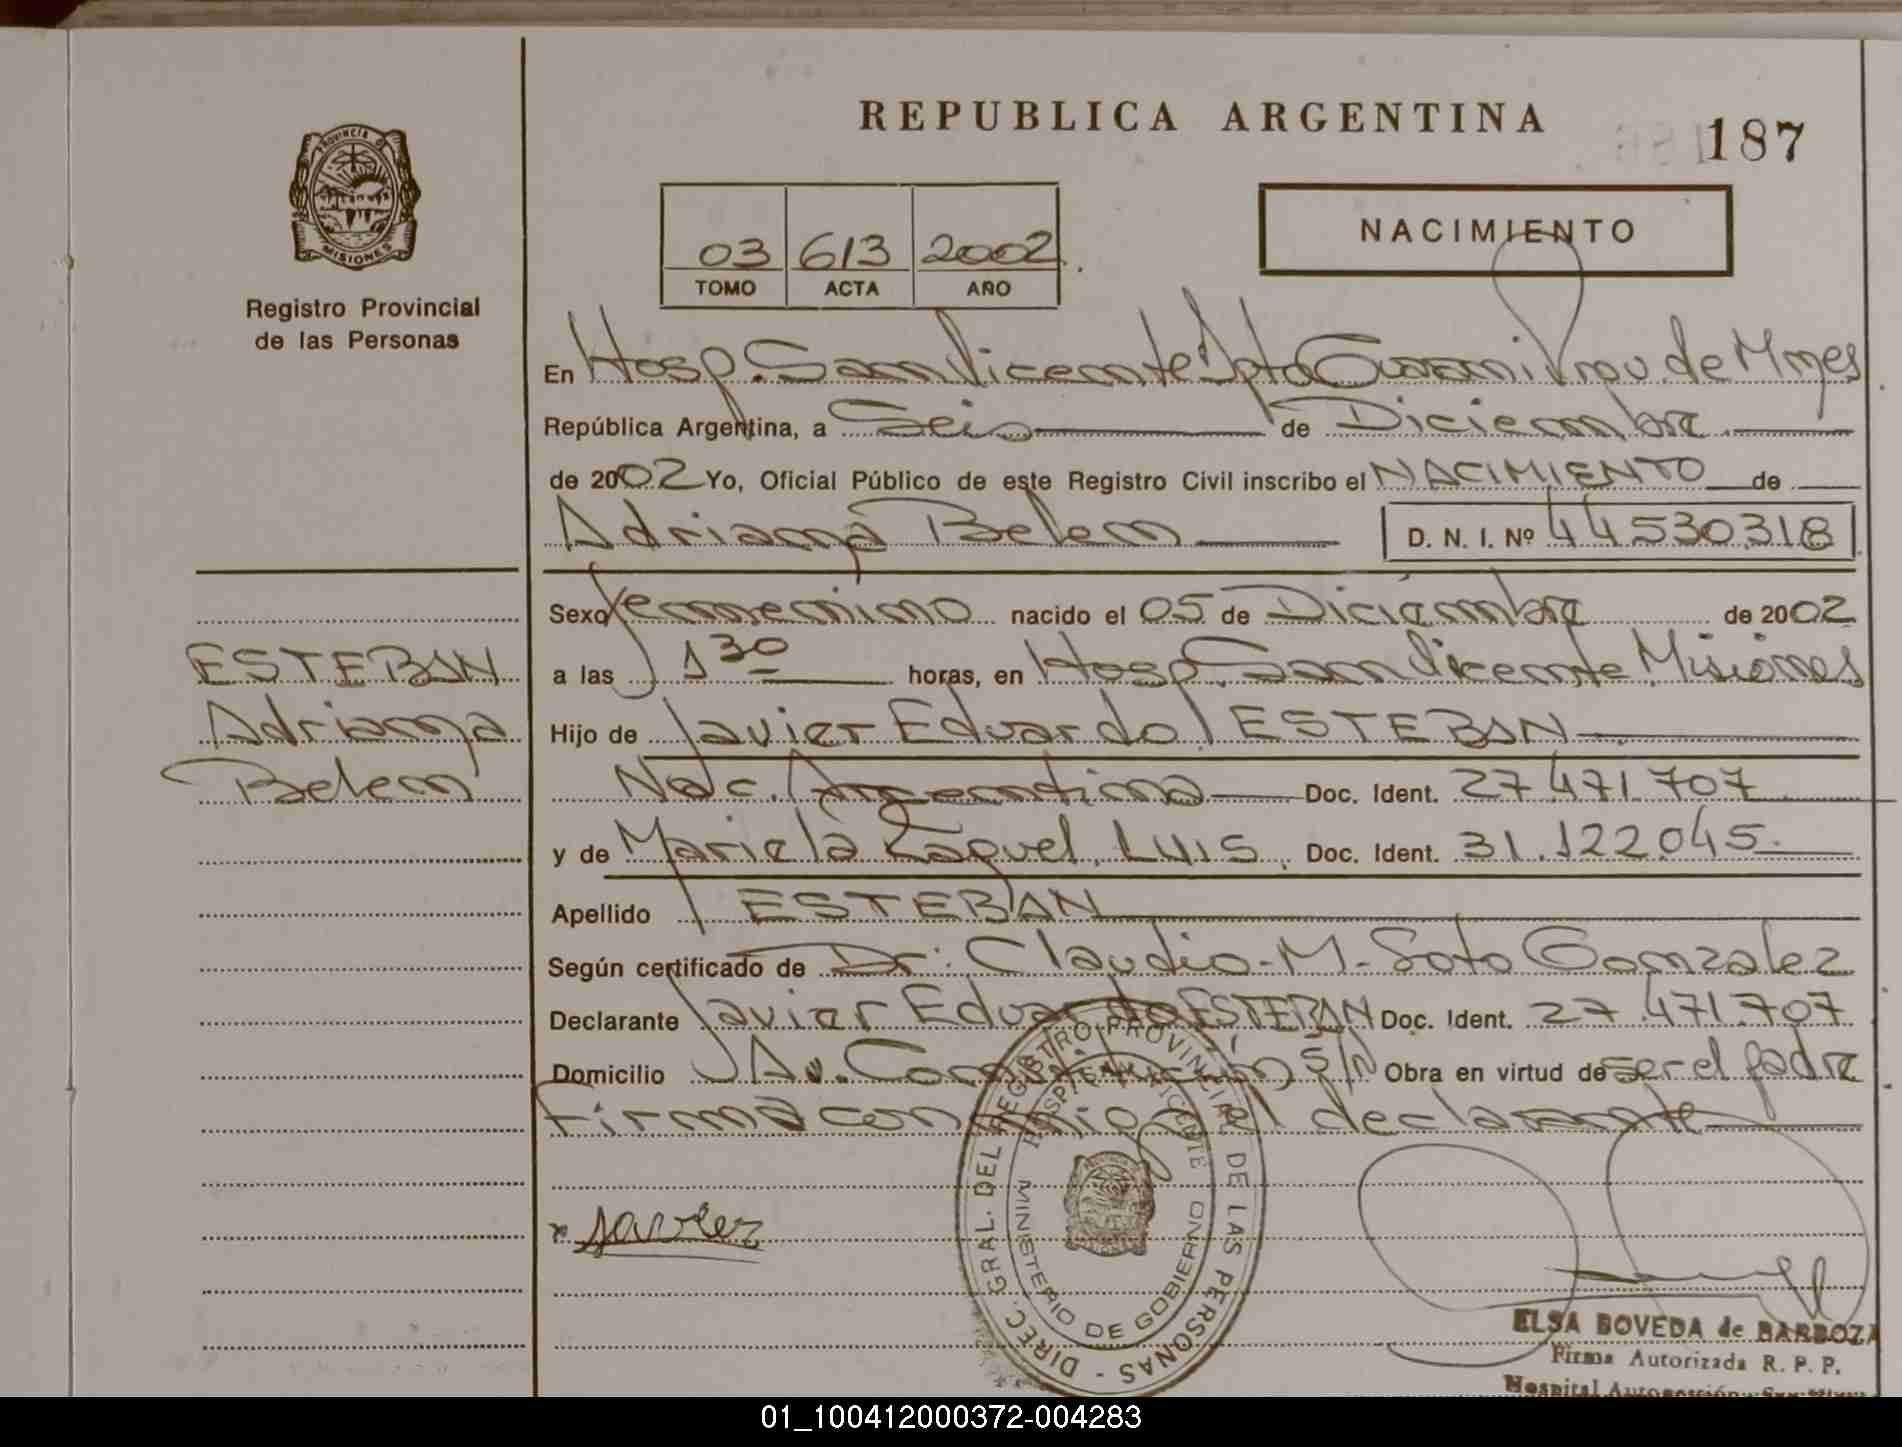 REPUBLICA ARGENTINA
187
PROVINCIA DE
MISIONES
Registro Provincial
de las Personas
03 613 2002
TOMO ACTA AÑO
NACIMIENTO
En Hosp. San Vicente Dpto Guaraní Prov. de Mnes
República Argentina, a Seis de Diciembre
de 2002 Yo, Oficial Público de este Registro Civil inscribo el NACIMIENTO de
Adriana Belem D. N. I. Nº 44530318
Sexo femenino nacido el 05 de Diciembre de 2002
a las 1 30 horas, en Hosp. San Vicente Misiones
Hijo de Javier Eduardo ESTEBAN
Nac. Argentina Doc. Ident. 27 471.707
y de Mariela Raquel LUIS Doc. Ident. 31.122.045.
Apellido ESTEBAN
Según certificado de Dr: Claudio-M-Soto Gonzalez
Declarante Javier Eduardo ESTEBAN Doc. Ident. 27 471.707
Domicilio Av. Constitución S/N Obra en virtud de ser el padre
Firma conmigo el declarante
ESTEBAN
Adriana
Belem
x Javier
DIREC. GRAL. DEL REGISTRO PROVINCIAL DE LAS PERSONAS -
HOSPITAL SAN VICENTE
MINISTERIO DE GOBIERNO
ELSA BOVEDA de BARBOZA
Firma Autorizada R. P. P.
Hospital Autogestión
01_100412000372-004283